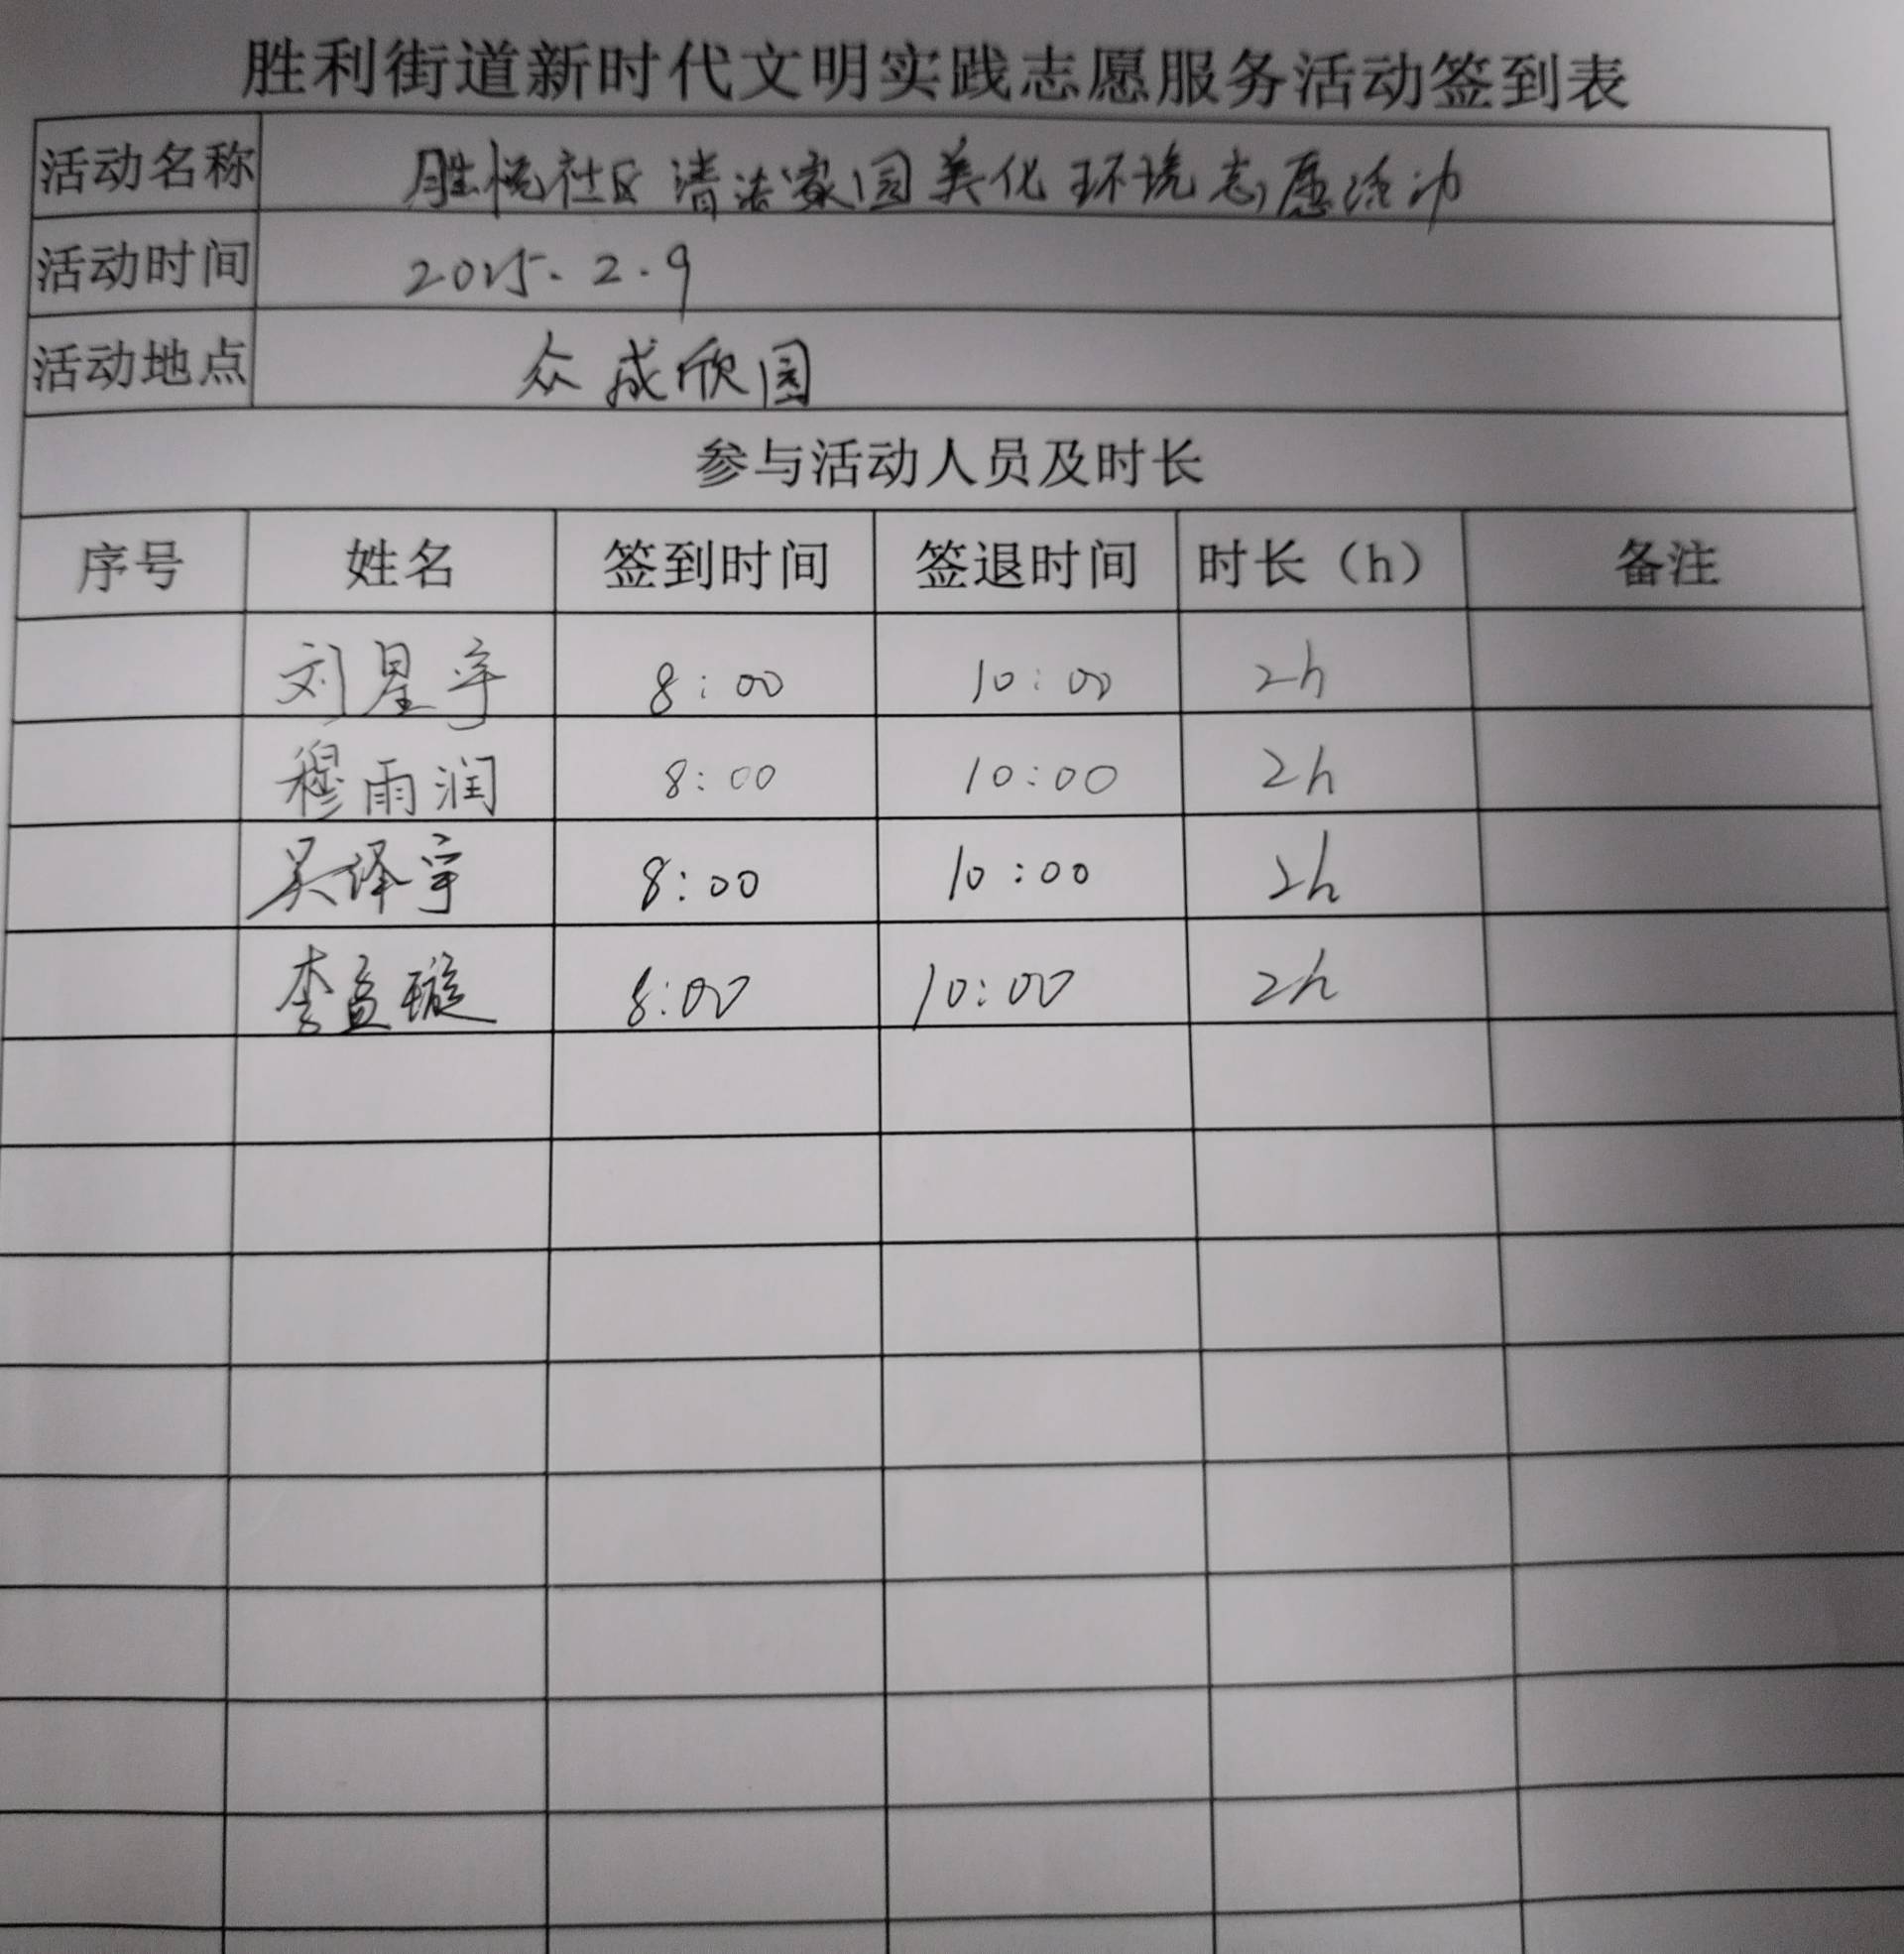 胜利街道新时代文明实践志愿服务活动签到表
活动名称 胜悦社区清洁家园美化环境志愿活动
活动时间 2025.2.9
活动地点 众成欣园
参与活动人员及时长
序号 姓名 签到时间 签退时间 时长（h） 备注
刘星宇 8:00 10:00 2h
穆雨润 8:00 10:00 2h
吴泽宇 8:00 10:00 2h
李孟璇 8:00 10:00 2h